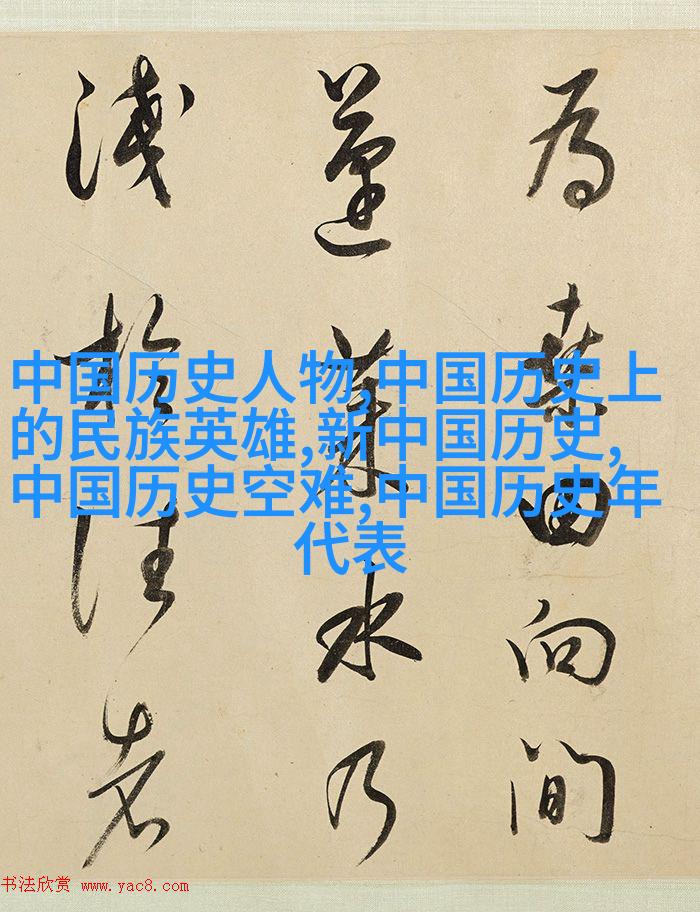 為桑田向間
蓬萊水乃
淺於往者
中国历史人物,中国历史上
的民族英雄,新中国历史,
中国历史空难,中国历史年
代表
书法欣赏 www.yac8.com